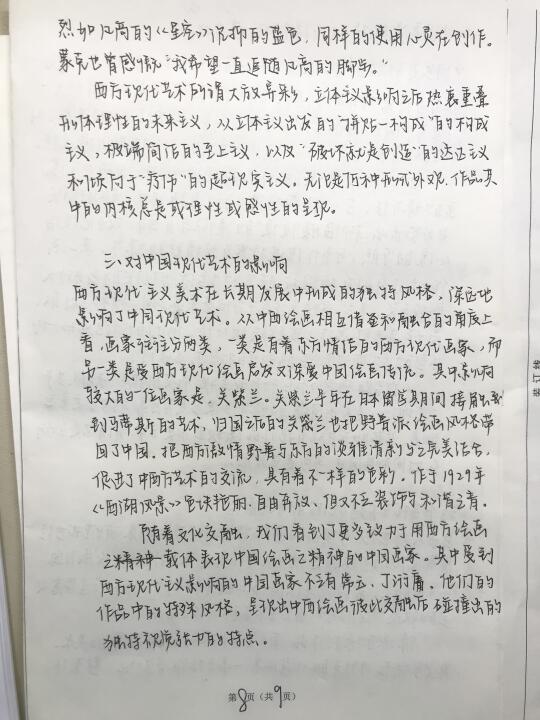 烈如凡高的《星空》沉抑的蓝色，同样的使用心灵在创作。
蒙克也曾感慨“我希望一直追随凡高的脚步。”
西方现代艺术所谓大放异彩，立体主义影响之后热衷重叠
形体理性的未来主义，从立体主义出发的“拼贴—构成”的构成
主义，极端简洁的至上主义，以及“破坏就是创造”的达达主义
和倾向于“疗伤”的超现实主义。无论是何种形式外观，作品其
中的内核总是或理性或感性的呈现。
三、对中国现代艺术的影响
西方现代主义美术在长期发展中形成的独特风格，深远地
影响了中国现代艺术。从中西绘画相互借鉴和融合的角度上
看，画家往往分两类，一类是有着东方情结的西方现代画家，而
另一类是受西方现代绘画启发又深展中国绘画传统。其中影响
较大的一位画家是，关紫兰。关紫兰早年在日本留学期间接触
到马蒂斯的艺术，归国之后的关紫兰也把野兽派绘画风格带
回了中国。把西方激情野兽与东方的淡雅清新的完美结合，
促进了中西方艺术的交流，具有着不一样的色彩。作于1929年
《西湖风景》色块艳丽，自由奔放、但又不乏装饰的和谐之音。
随着文化交融，我们看到了更多致力于用西方绘画
之精神载体表现中国绘画之精神的中国画家。其中受到
西方现代主义影响的中国画家不乏有常玉，丁衍庸。他们的
作品中的特殊风格，呈现出中西绘画彼此交融后碰撞出的
独特视觉张力的特点。
第8页（共9页）
装订线